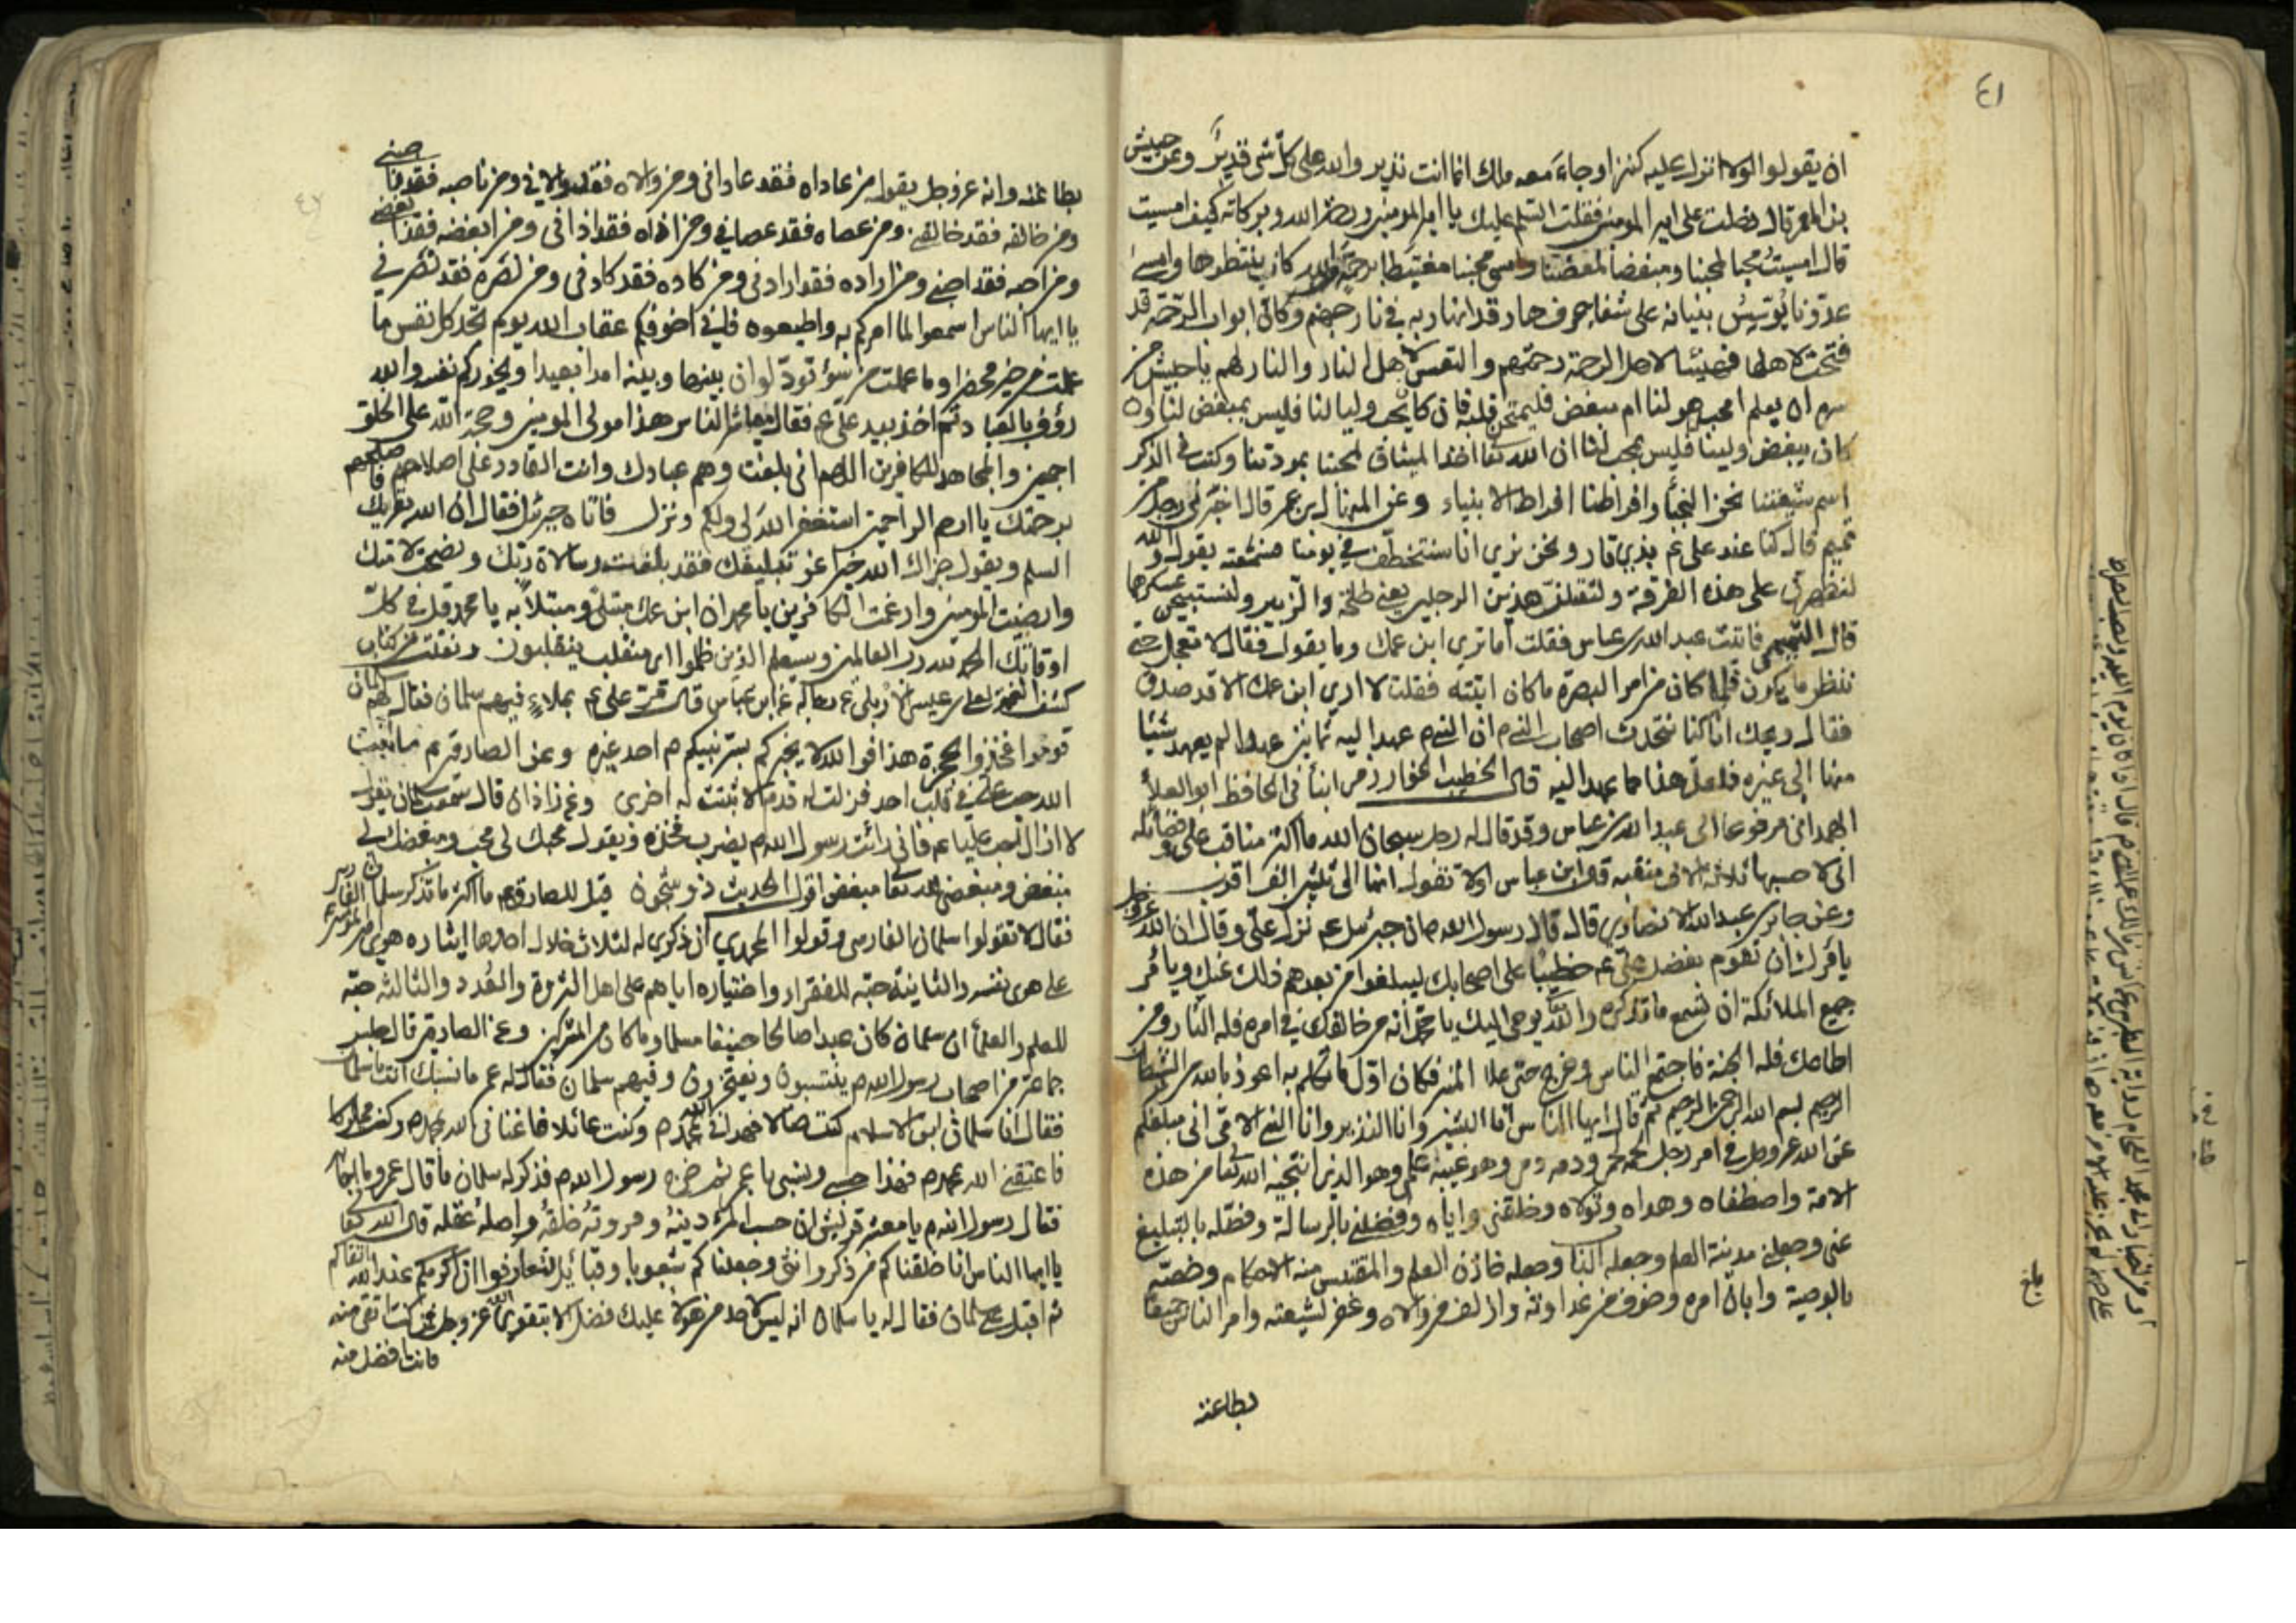 ٤١
ان يقولوا لولا انزل عليه كنز او جاء معه ملك انما انت نذير والله على كل شئ قدير وعن حبيش
بن المعمر قال دخلت على امير المومنين فقلت السلم عليك يا امير المومنين ورحمة الله وبركاته كيف امسيت
قال امسيت محبا لمحبنا ومبغضا لمبغضنا وامسى محبنا مغتبطا برحمة من الله كان ينتظرها وامسى
عدونا يؤسس بنيانه على شفا جرف هار قد انهار به في نار جهنم وكان ابواب الرحمة قد
فتحت لاهلها فهنيئا لاهل الرحمة رحمتهم والتعس لاهل النار والنار لهم يا حبيش من
سره ان يعلم امحب هو لنا ام مبغض فليمتحن قلبه فان كان يحب وليا لنا فليس بمبغض لنا وان
كان يبغض ولينا فليس بمحب لنا ان الله تعا اخذ الميثاق لمحبنا بمودتنا وكتب في الذكر
اسم شيعتنا نحن النجبا وافراطنا افراط الانبياء وعن المنهال بن عمر قال اخبرني رجل من
تميم قال كنا عند علي عم بذي قار ونحن نرى انا سنتخطف في يومنا فسمعته يقول والله
لنظهرن على هذه الفرقة ولنقتلن هذين الرجلين يعني طلحة والزبير ولنستبيحن عسكرهما
قال التميمي فاتيت عبد الله بن عباس فقلت اما ترى ابن عمك وما يقول فقال لا تعجل حتى
ننظر ما يكون فلما كان من امر البصرة ما كان اتيته فقلت لا ارى ابن عمك الا قد صدق
فقال ويحك انا كنا نتحدث اصحاب النبي ص ان النبي ص عهد اليه ثمانين عهدا لم يعهد شيئا
منها الى غيره فلعل هذا مما عهد اليه قال الخطيب الخوارزمي انبأني الحافظ ابو العلا
الهمداني مرفوعا الى عبد الله بن عباس وقد قال له رجل سبحان الله ما اكثر مناقب علي وفضائله
اني لاحسبها ثلاثة الاف منقبة قال ابن عباس اولا تقول انها الى ثلثين الف اقرب
وعن جابر بن عبد الله الانصاري قال قال رسول الله ص ان جبرئيل عم نزل علي وقال ان الله عز وجل
يامرك ان تقوم بفضل علي عم خطيبا على اصحابك ليبلغوا من بعدهم ذلك عنك ويامر
جميع الملائكة ان تسمع ما تذكره والله تعا يوحي اليك يا محمد انه من خالفك في امره فله النار ومن
اطاعك فله الجنة فاجتمع الناس وخرج حتى علا المنبر فكان اول ما تكلم به اعوذ بالله من الشيطان
الرجيم بسم الله الرحمن الرحيم ثم قال ايها الناس انا البشير وانا النذير وانا النبي الامي اني مبلغكم
عن الله عز وجل في امر رجل لحمه لحمي ودمه دمي وهو عيبة علمي وهو الذي انتجبه الله تعا من هذه
الامة واصطفاه وهداه وتولاه وخلقني واياه وفضلني بالرسالة وفضله بالتبليغ
عني وجعلني مدينة العلم وجعله الباب وجعله خازن العلم والمقتبس منه الاحكام وخصه
بالوصية وابان امره وخوف من عداوته وازلف من والاه وغفر لشيعته وامر الناس جميعا
بطاعته
بلغ
بطاعته وانه عز وجل يقول من عاداه فقد عاداني ومن والاه فقد والاني ومن ناصبه فقد ناصبني
ومن خالفه فقد خالفني ومن عصاه فقد عصاني ومن اذاه فقد اذاني ومن ابغضه فقد ابغضني
ومن احبه فقد احبني ومن اراده فقد ارادني ومن كاده فقد كادني ومن نصره فقد نصرني
يا ايها الناس اسمعوا لما امركم به واطيعوه فاني اخوفكم عقاب الله يوم تجد كل نفس ما
عملت من خير محضرا وما عملت من سؤ تود لو ان بينها وبينه امدا بعيدا ويحذركم الله نفسه والله
رؤف بالعباد ثم اخذ بيد علي عم فقال معاشر الناس هذا مولى المومنين وحجة الله على الخلق
اجمعين والمجاهد للكافرين اللهم اني بلغت وهم عبادك وانت القادر على اصلاحهم فاصلحهم
برحمتك يا ارحم الراحمين استغفر الله لي ولكم ونزل فاتاه جبرئيل فقال ان الله يقريك
السلم ويقول جزاك الله خيرا عن تبليغك فقد بلغت رسالاة ربك ونصحت لامتك
وارضيت المومنين وارغمت الكافرين يا محمد ان ابن عمك مبتلى ومبتلا به يا محمد قل في كل
اوقاتك الحمد لله رب العالمين وسيعلم الذين ظلموا اي منقلب ينقلبون ونقلت من كتاب
كشف الغمة لعلي بن عيسى الاربلي عن ابن عباس قال مر علي عم بملاء فيهم سلمان فقال لهم سلمان
قوموا فخذوا بحجزة هذا فوالله لا يخبركم بسر نبيكم ص احد غيره وعن الصادق عم ما ثبت
الله حب علي في قلب احد فزلت له قدم الا ثبتت له اخرى وعن زاذان قال سمعت سلمان يقول
لا ازال احب عليا عم فاني رايت رسول الله ص يضرب فخذه ويقول محبك لي محب ومبغضك لي
مبغض ومبغضي لله تعا مبغض اقول الحديث ذو شجون قيل للصادق عم ما اكثر ما تذكر سلمان الفارسي
فقال لا تقولوا سلمان الفارسي وقولوا المحمدي ان ذكري له لثلاث خلال احدها ايثاره هوى امير المومنين
على هوى نفسه والثانية حبه للفقراء واختياره اياهم على اهل الثروة والعدد والثالثة حبه
للعلم والعلما ان سلمان كان عبدا صالحا حنيفا مسلما وما كان من المشركين وعن الصادق قال جلس
جماعة من اصحاب رسول الله ص ينتسبون ويفتخرون وفيهم سلمان فقال له عمر ما نسبك انت يا سلمان
فقال انا سلمان ابن الاسلام كنت ضالا فهداني الله بمحمد ص وكنت عائلا فاغناني الله بمحمد ص وكنت مملوكا
فاعتقني الله بمحمد ص فهذا حسبي ونسبي يا عمر ثم خرج رسول الله ص فذكر له سلمان ما قال عمر وما اجابه
فقال رسول الله ص يا معشر قريش ان حسب المرء دينه ومروته خلقه واصله عقله قال الله تعا
يا ايها الناس انا خلقناكم من ذكر وانثى وجعلناكم شعوبا وقبائل لتعارفوا ان اكرمكم عند الله اتقاكم
ثم اقبل على سلمان فقال له يا سلمان انه ليس لاحد من هولاء عليك فضل الا بتقوى الله عز وجل فمن كنت اتقى منه
فانت افضل منه